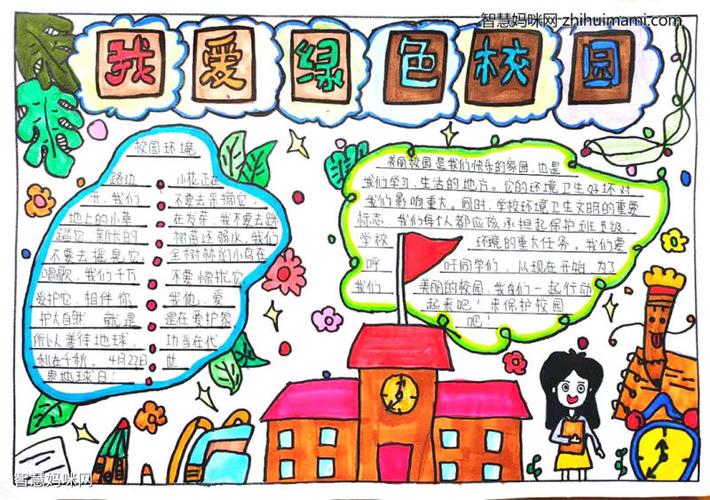 智慧妈咪网-zhihuimami.com
我爱绿色校园
校园环境
路边 小花正在
开，我们 不要去采摘它，
地上的小草 在发芽，我不要去踩
踏它 新长的 树苗还弱小，我们
不要去摇晃它 全树林的小鸟在
唱歌，我们千万 不要惊扰它
爱护它，相伴你 我他，爱
护大自然 就是 是在爱护家
所以善待地球， 功当在代
利在千秋。4月22日 世
界地球日！
美丽校园是我们快乐的家园，也是
我们学习，生活的地方。它的环境卫生好坏对
我们影响重大。同时，学校环境卫生文明的重要
标志，我们每个人都应该承担起保护班级，
学校 环境的重大任务。我们爱
呼 吁同学们，从现在开始，为了
我们 美丽的校园，我们一起行动
起来吧！来保护校园
吧！
智慧妈咪网